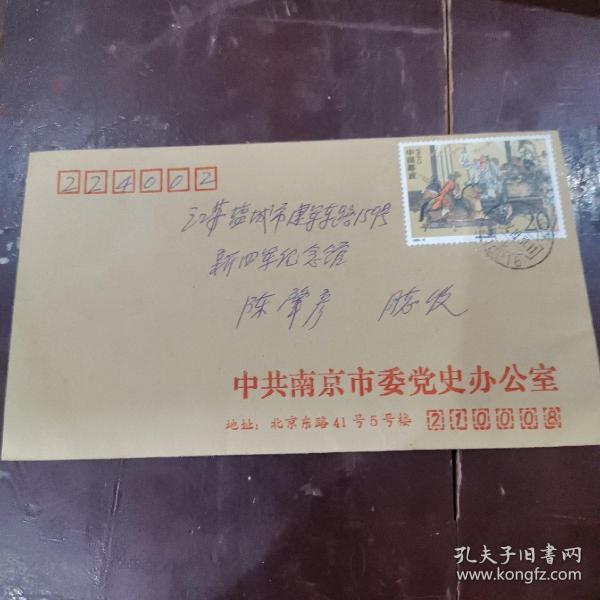 224002
江苏盐城市建军东路159号
新四军纪念馆
陈肇彦 收
中国邮政
20
中共南京市委党史办公室
地址：北京东路41号5号楼 210008
孔夫子旧书网
www.kongfz.com